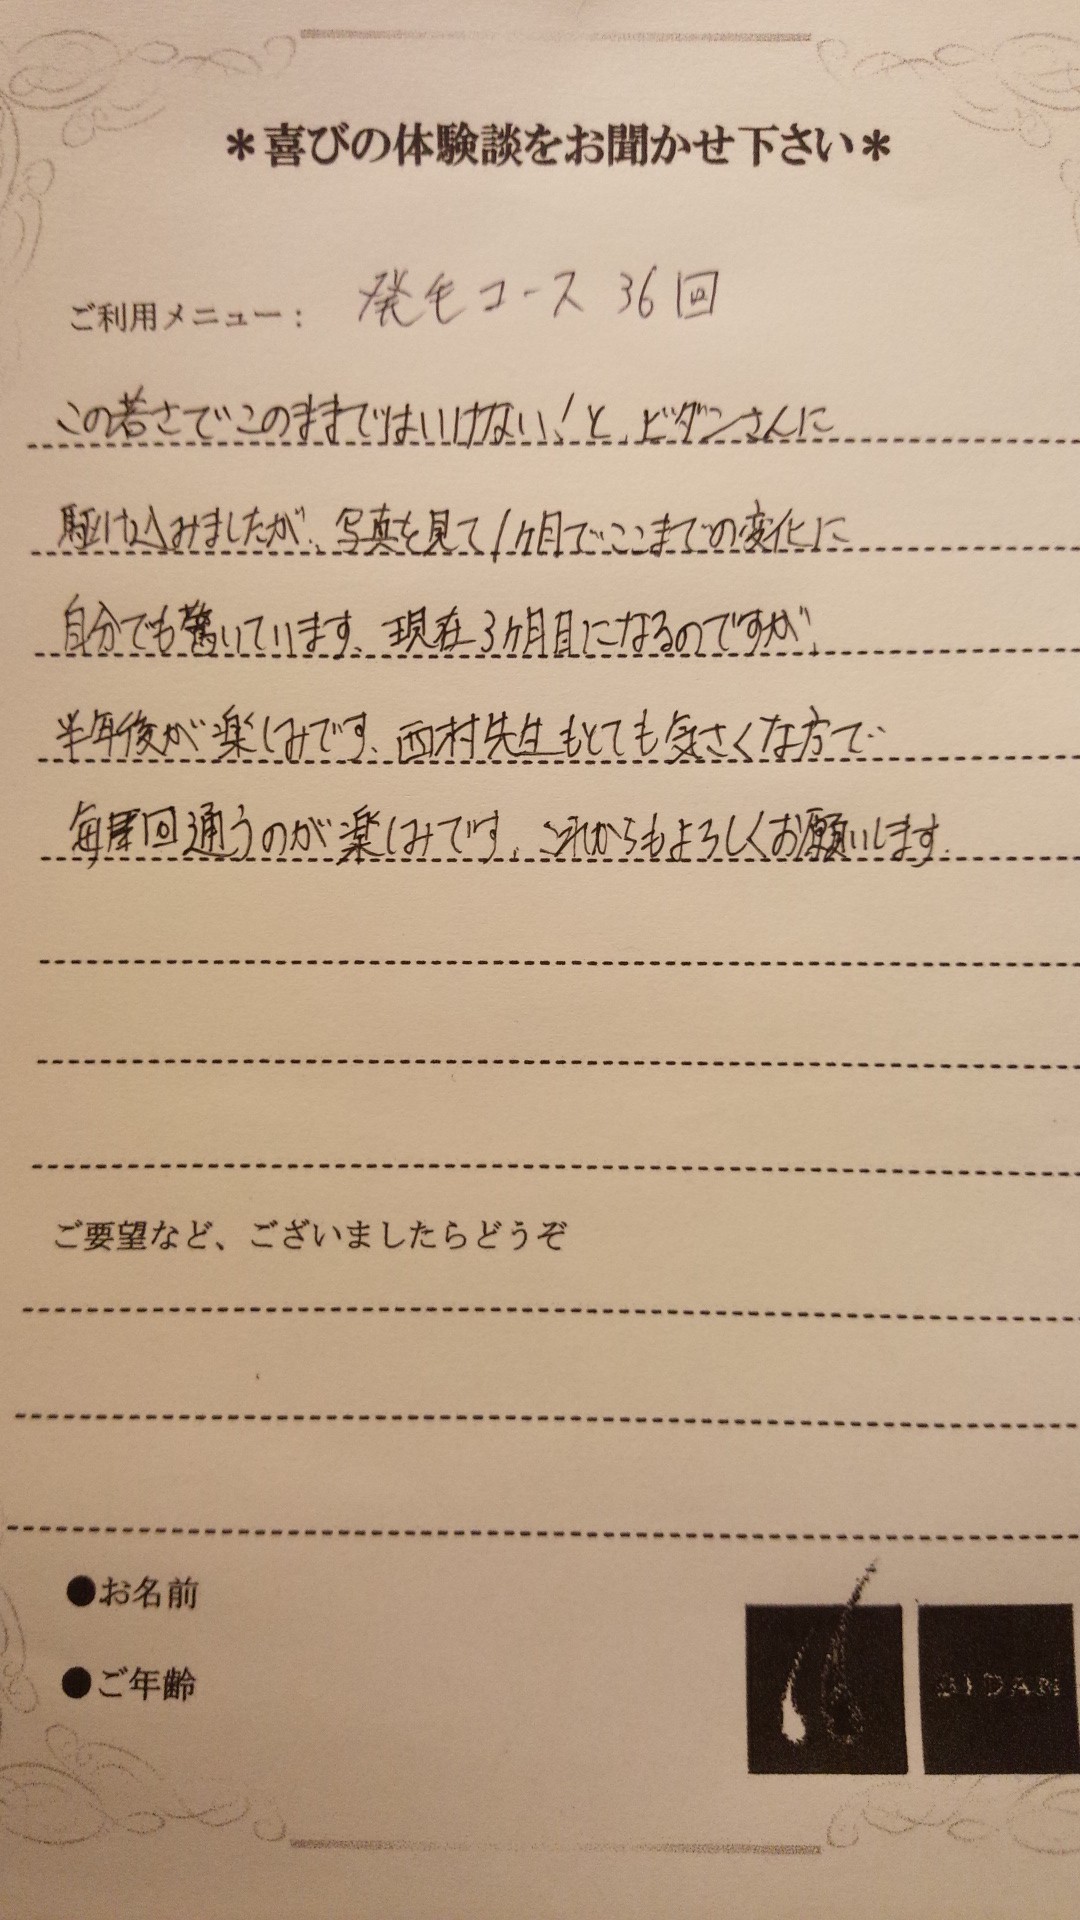 ＊喜びの体験談をお聞かせ下さい＊
ご利用メニュー： 発毛コース 36回
この若さでこのままではいけない！と、ビダンさんに
駆け込みましたが、写真を見て1ヶ月でここまでの変化に
自分でも驚いています。現在3ヶ月目になるのですが、
半年後が楽しみです。西村先生もとても気さくな方で
毎回通うのが楽しみです。これからもよろしくお願いします。
ご要望など、ございましたらどうぞ
●お名前
●ご年齢
BIDAN